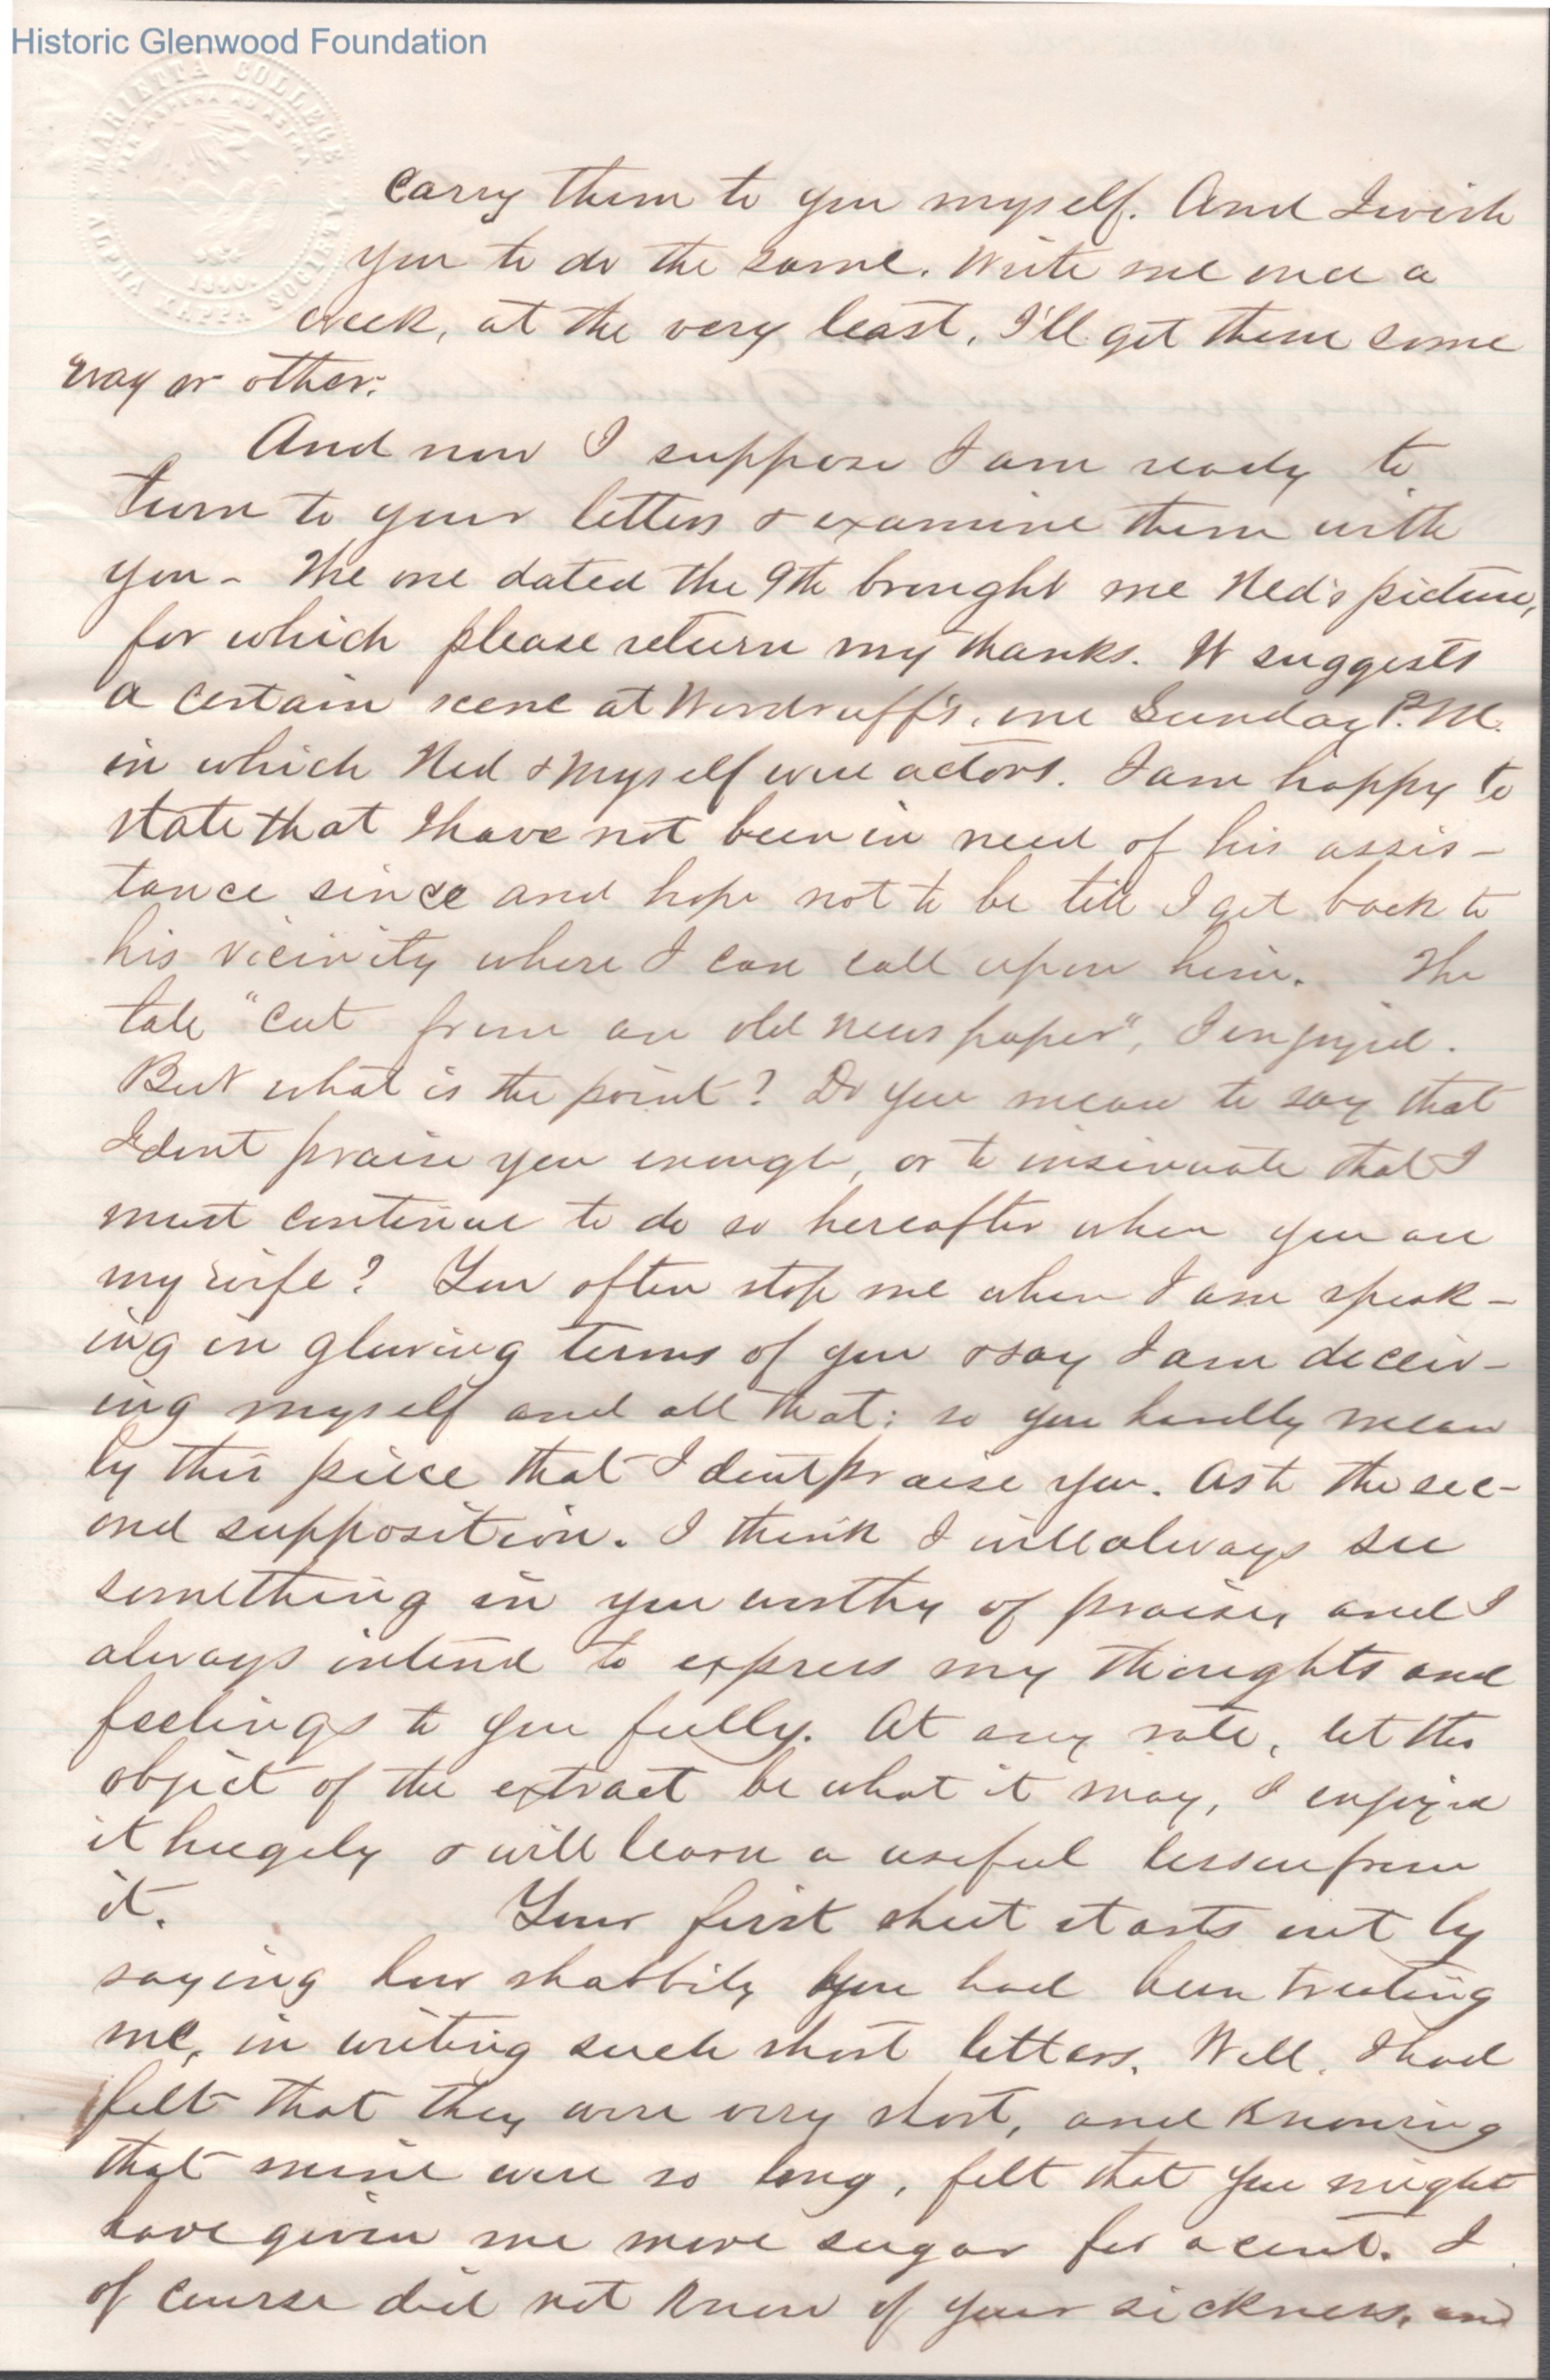 Historic Glenwood Foundation
MARIETTA COLLEGE
PER ASPERA AD ASTRA
1840.
ALPHA KAPPA SOCIETY
carry them to you myself. And I wish
you to do the same. Write me once a
week, at the very least. I'll get them some
way or other.
And now I suppose I am ready to
turn to your letters & examine them with
you - The one dated the 9th brought me Ned's picture,
for which please return my thanks. It suggests
a certain scene at Woodruff's, one Sunday P.M.
in which Ned & myself were actors. I am happy to
state that I have not been in need of his assis-
tance since and hope not to be till I get back to
his vicinity where I can call upon him. The
tale "cut from an old newspaper", I enjoyed.
But what is the point? Do you mean to say that
I dont praise you enough, or to insinuate that I
must continue to do so hereafter when you are
my wife? You often stop me when I am speak-
ing in glowing terms of you & say I am deceiv-
ing myself and all that; so you hardly mean
by this piece that I dont praise you. As to the sec-
ond supposition. I think I will always see
something in you worthy of praise, and I
always intend to express my thoughts and
feelings to you fully. At any rate, let the
object of the extract be what it may, I enjoyed
it hugely & will learn a useful lesson from
it. Your first sheet starts out by
saying how shabbily you had been treating
me, in writing such short letters. Well, I had
felt that they were very short, and knowing
that mine were so long, felt that you might
have given me more sugar for a cent. I
of course did not know of your sickness, and